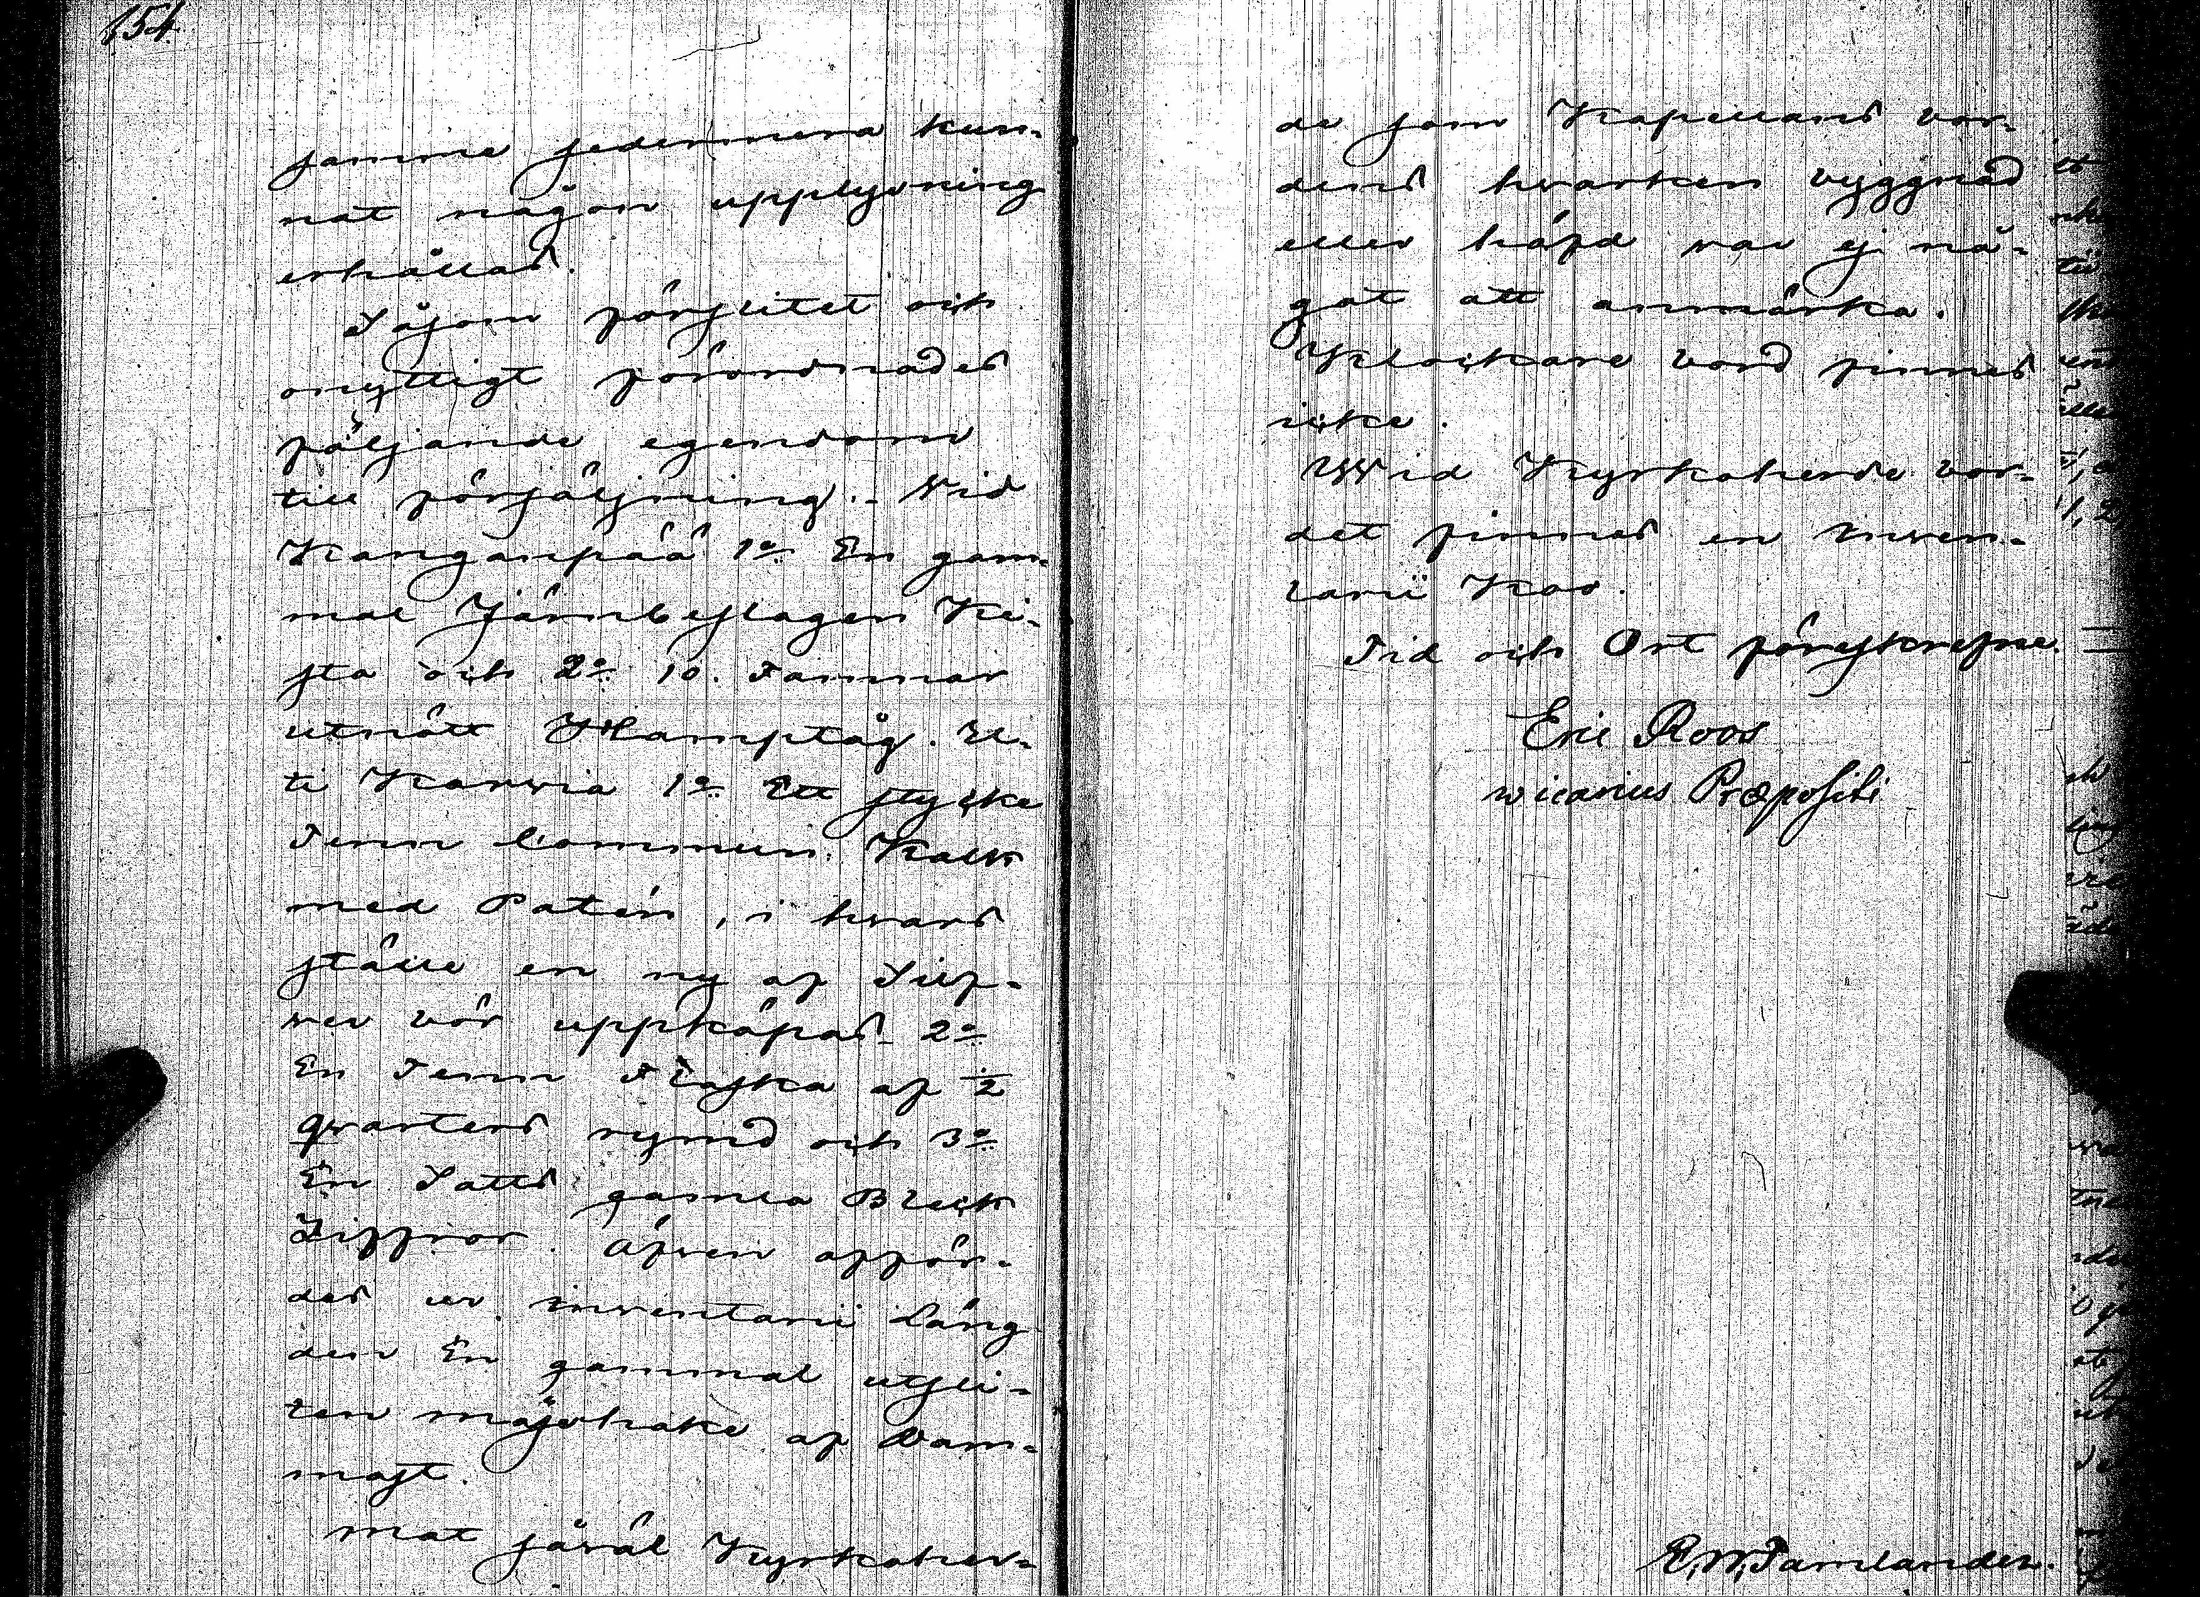 154
samma sedermera kun-
nat någon upplysning
erhållas.
Såsom förslitet och
onyttigt förordnades
följande egendom
till försäljning:- Vid
Kanganpää 1:o En gam-
mal Järnbeslagen Ki-
sta och 2:o 10. Famnar
utnött Hamptåg. Ut-
i Karvia 1:o Ett stycke
Tenn Commun. Kalk
med Patén, i hvars
ställe en ny af Silf-
ver bör uppköpas 2:o
En Tenn Flaska af 1/2
qvarters rymd och 3:o
En Satts gamla Bleck
Ziffror. Äfven afför-
des ur inventarii läng
den En gammal utsli-
ten mässhake af Dam-
mast.
Mot såväl Kyrkoher-
de som Kapellans bor-
dens hvarken byggnad
eller häfd var ej nå-
got att anmärka.
Klockare bord finnes
icke.
Wid Kyrkoherde bor-
det finnes en inven-
tarii Koo.
Tid och Ort förestrefne.
Eric Roos
wicarius Præpositi
E. W. Tamlander.